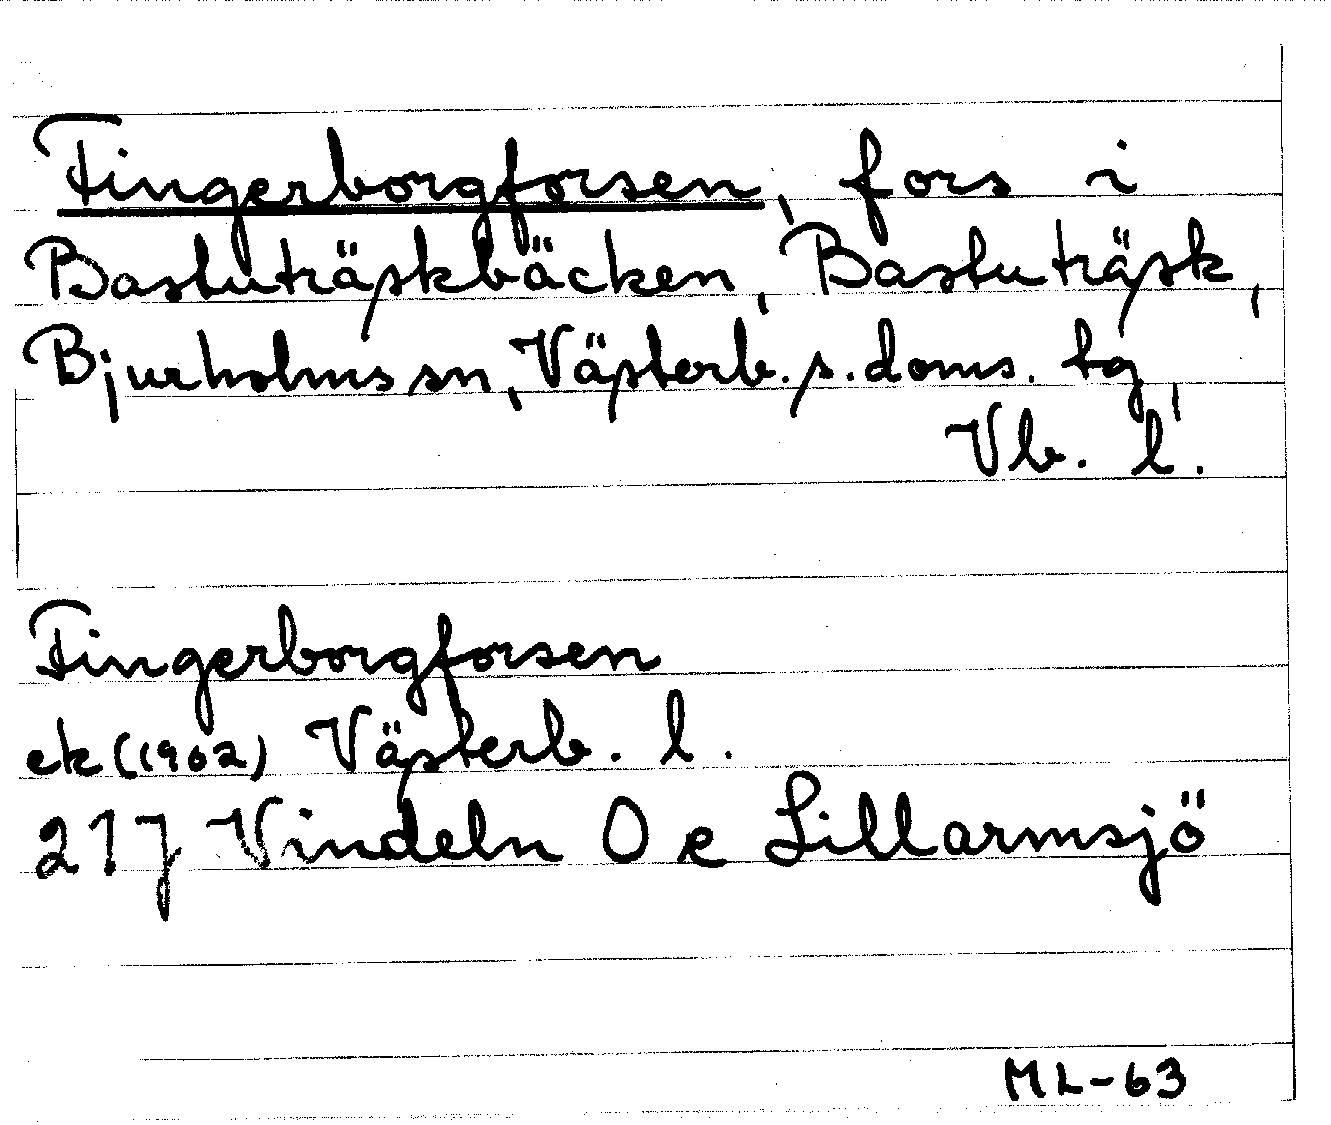 Fingerborgforsen, fors i
Bastuträskbäcken, Bastuträsk,
Bjurholms sn, Västerb. s. doms. tg,
Vb. l.
Fingerborgforsen
ek (1962) Västerb. l.
21J Vindeln O e Lillarmsjö
ML-63